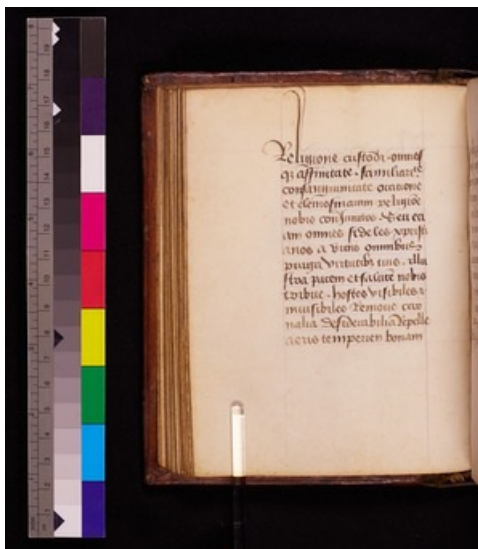 Religione custodi · omnes
qi affinitate · familiarita
consanguinitate oratione
et elemosinarum religiōe
nobis coniunctos
am omnes fideles xpisti
anos a viciis omnibus
purga virtutibus tuis · illu
stra pacem et salutē nobis
tribue · hostes visibiles ⁊
invisibiles remove car
nalia desiderabilia depelle
aeris temperiem bonam